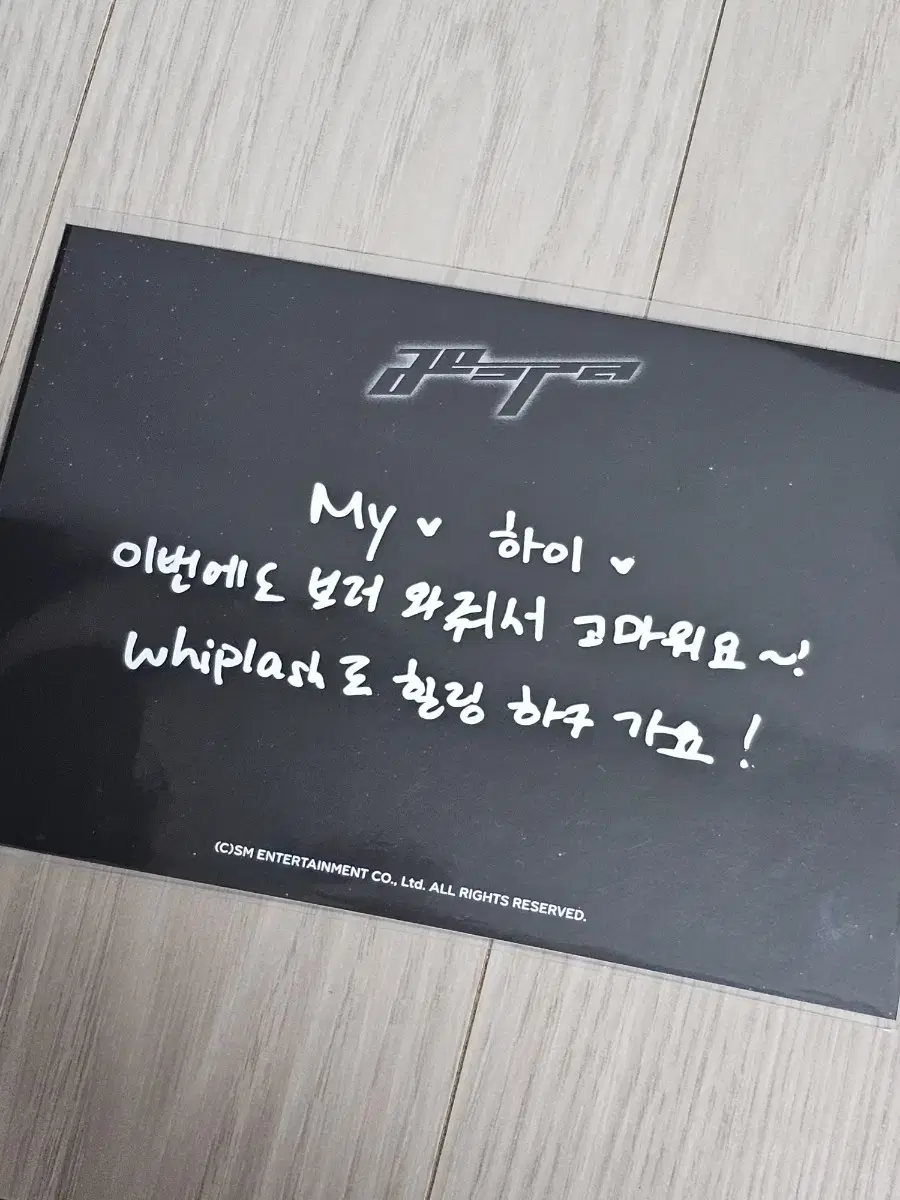 aespa
My ♥ 하이 ♥
이번에도 보러 와줘서 고마워요~!
Whiplash로 힐링 하구 가요!
(C)SM ENTERTAINMENT CO., Ltd. ALL RIGHTS RESERVED.